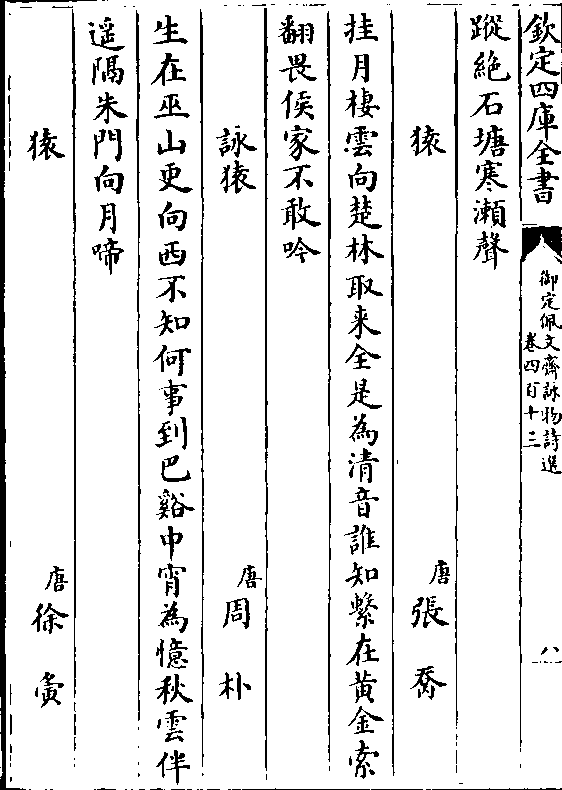 欽定四庫全書
御定佩文齋詠物詩選
卷四百十三
八
蹤絶石塘寒瀬聲
猿
唐
張喬
挂月棲雲向楚林取来全是為清音誰知繫在黄金索
翻畏侯家不敢吟
詠猿
唐
周朴
生在巫山更向西不知何事到巴谿中宵為憶秋雲伴
遥隔朱門向月啼
猿
唐
徐夤